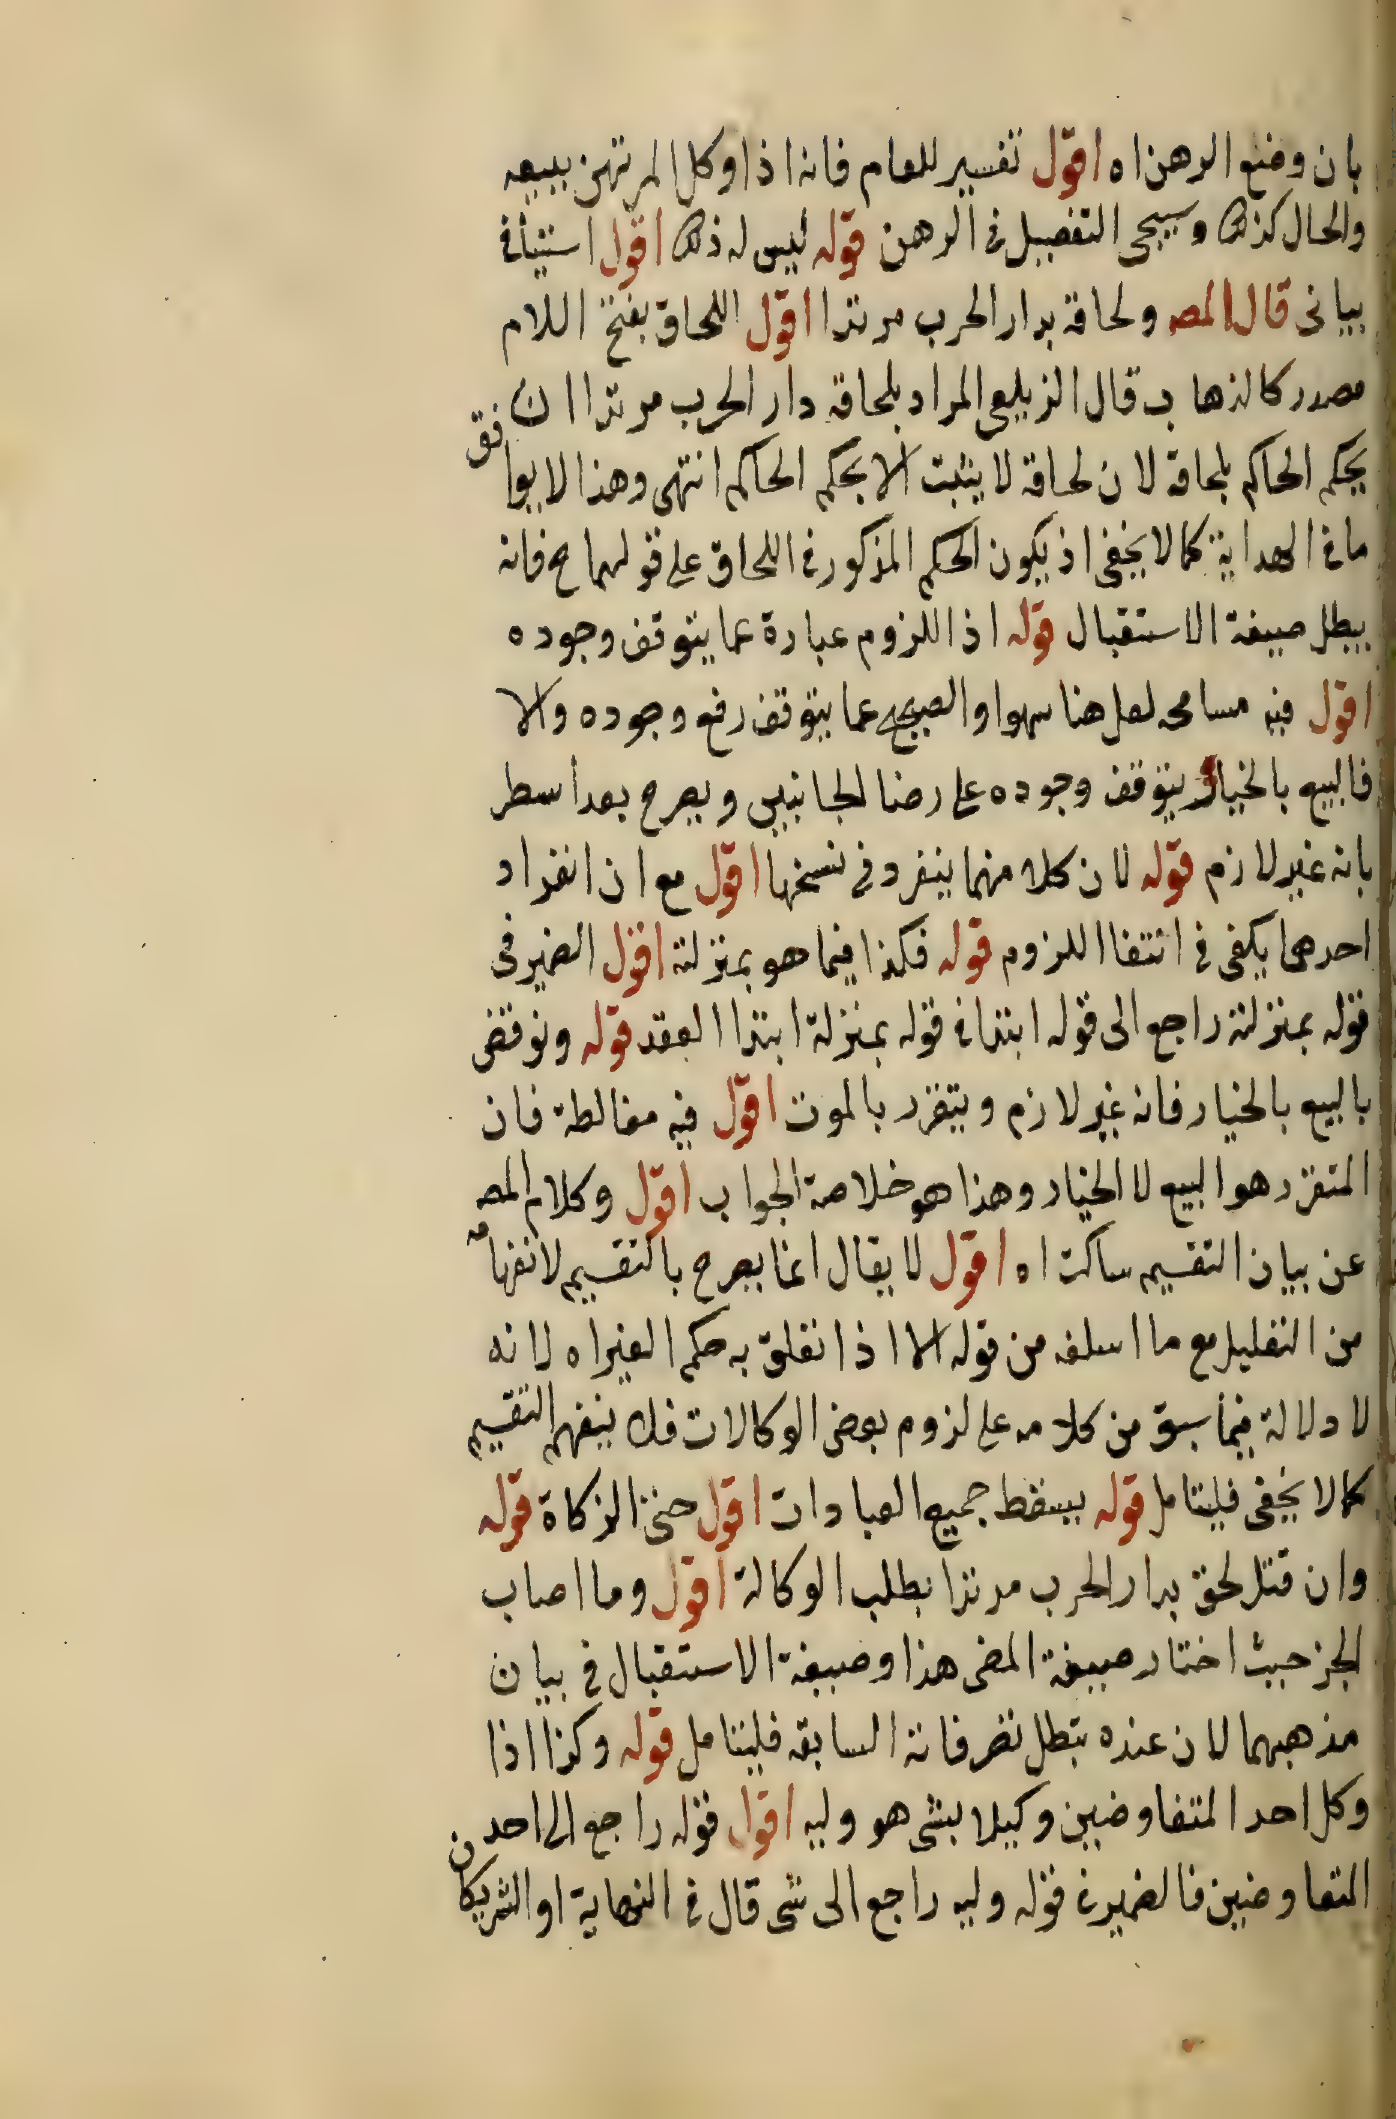 بان وضع الرهن اه اقول تفسير للعام فانه اذا وكل المرتهن ببيعه
والحال كذلك وسيجى التفصيل في الرهن قوله ليس له ذلك اقول استيناف
بيانى قال المصه ولحاقه بدار الحرب مرتدا اقول اللحاق بفتح اللام
مصدر كالذهاب قال الزيلعى المراد بلحاقه دار الحرب مرتدا ان
يحكم الحاكم بلحاقه لان لحاقه لا يثبت الا بحكم الحاكم انتهى وهذا لا يوافق
ما في الهداية كما لا يخفى اذ يكون الحكم المذكور في اللحاق على قولهما ح فانه
يبطل صيغة الاستقبال قوله اذ اللزوم عبارة عما يتوقف وجوده
اقول فيه مسامحه لعل هنا سهوا والصحيح عما يتوقف رفع وجوده والا
فالبيع بالخيار يتوقف وجوده على رضا الجانبين ويصرح بعد اسطر
بانه غير لازم قوله لان كلا منهما ينفرد في فسخها اقول مع ان انفراد
احدهما يكفى في انتفا اللزوم قوله فكذا فيما هو بمنزلته اقول الضمير فى
قوله بمنزلته راجع الى قوله ابتدا في قوله بمنزلة ابتدا العقد قوله ونوقض
بالبيع بالخيار فانه غير لازم ويتقرر بالموت اقول فيه مغالطة فان
المتقرر هو البيع لا الخيار وهذا هو خلاصة الجواب اقول وكلام المصه
عن بيان التقسيم ساكت اه اقول لا يقال انما يصرح بالتقسيم لانفهامه
من التعليل مع ما اسلفه من قوله الا اذا تعلق به حكم الغير اه لانه
لا دلالة فيما سبق من كلامه على لزوم بعض الوكالات فلا ينفهم التقسيم
كما لا يخفى فليتامل قوله يسقط جميع العبادات اقول حتى الزكاة قوله
وان قتل لحق بدار الحرب مرتدا بطلب الوكالة اقول وما اصاب
الجز حيث اختار صيغة المضى هذا وصيغة الاستقبال في بيان
مذهبهما لان عنده تبطل تصرفاته السابقه فليتامل قوله وكذا اذا
وكل احد المتفاوضين وكيلا بشى هو وليه اقول قوله راجع الى احد
المتفاوضين فالضمير في قوله وليه راجع الى شى قال في النهاية او الشريكان